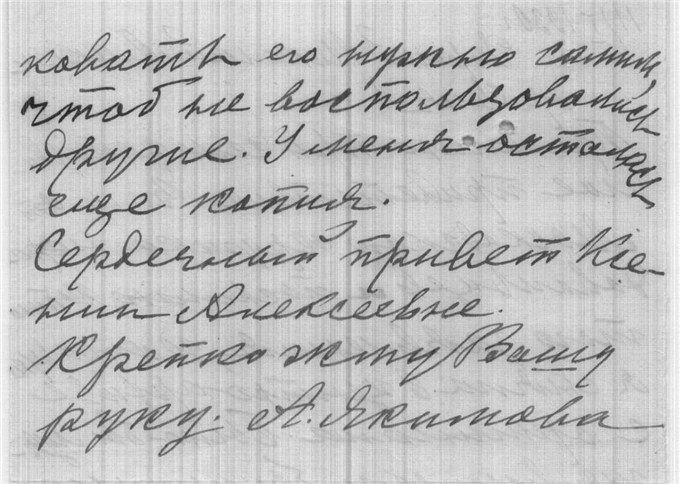 ковать его нужно самим,
чтоб не воспользовались
другие. У меня осталась
еще копия.
Сердечный привет Ксе-
нии Алексеевне.
Крепко жму Вашу
руку. А. Якимова